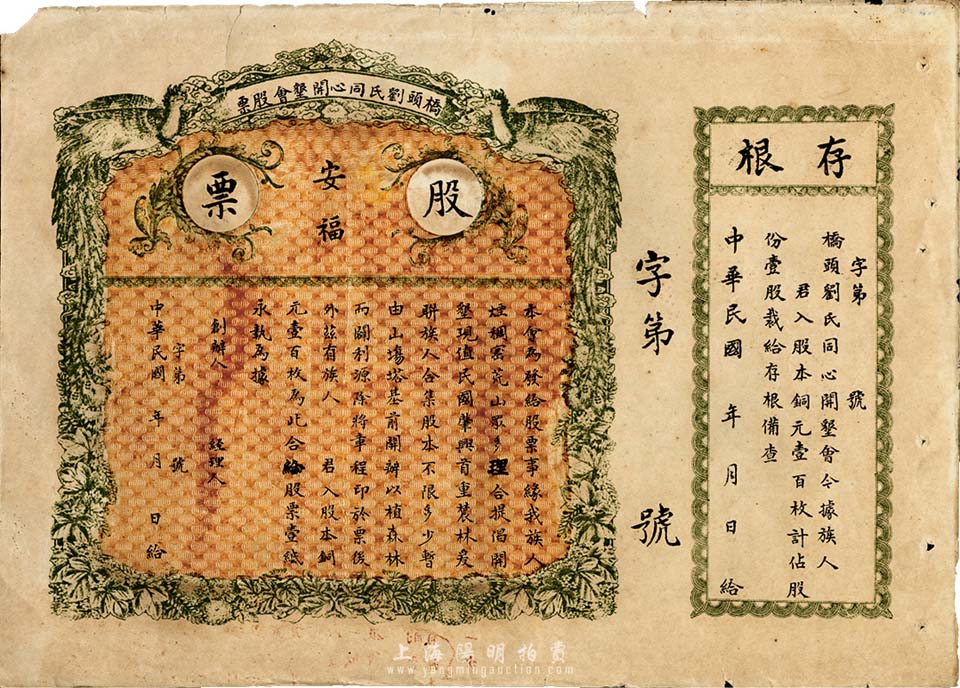 存根
字第　號
橋頭劉氏同心開墾會今據族人
君入股本銅元壹百枚計佔股
份壹股裁給存根備查
中華民國　年　月　日　給
字第　號
橋頭劉氏同心開墾會股票
股票
安福
本會為發給股票事緣我族人
煙稠密荒山眾多理合提倡開
墾現值民國肇興首重農林爰
聯族人合集股本不限多少暫
由山場塔基前開辦以植森林
而闢利源除將章程印於票後
外茲有族人　君入股本銅
元壹百枚為此合給股票壹紙
永執為據
創辦人　經理人
字第　號
中華民國　年　月　日給
上海陽明拍賣
www.yangmingauction.com